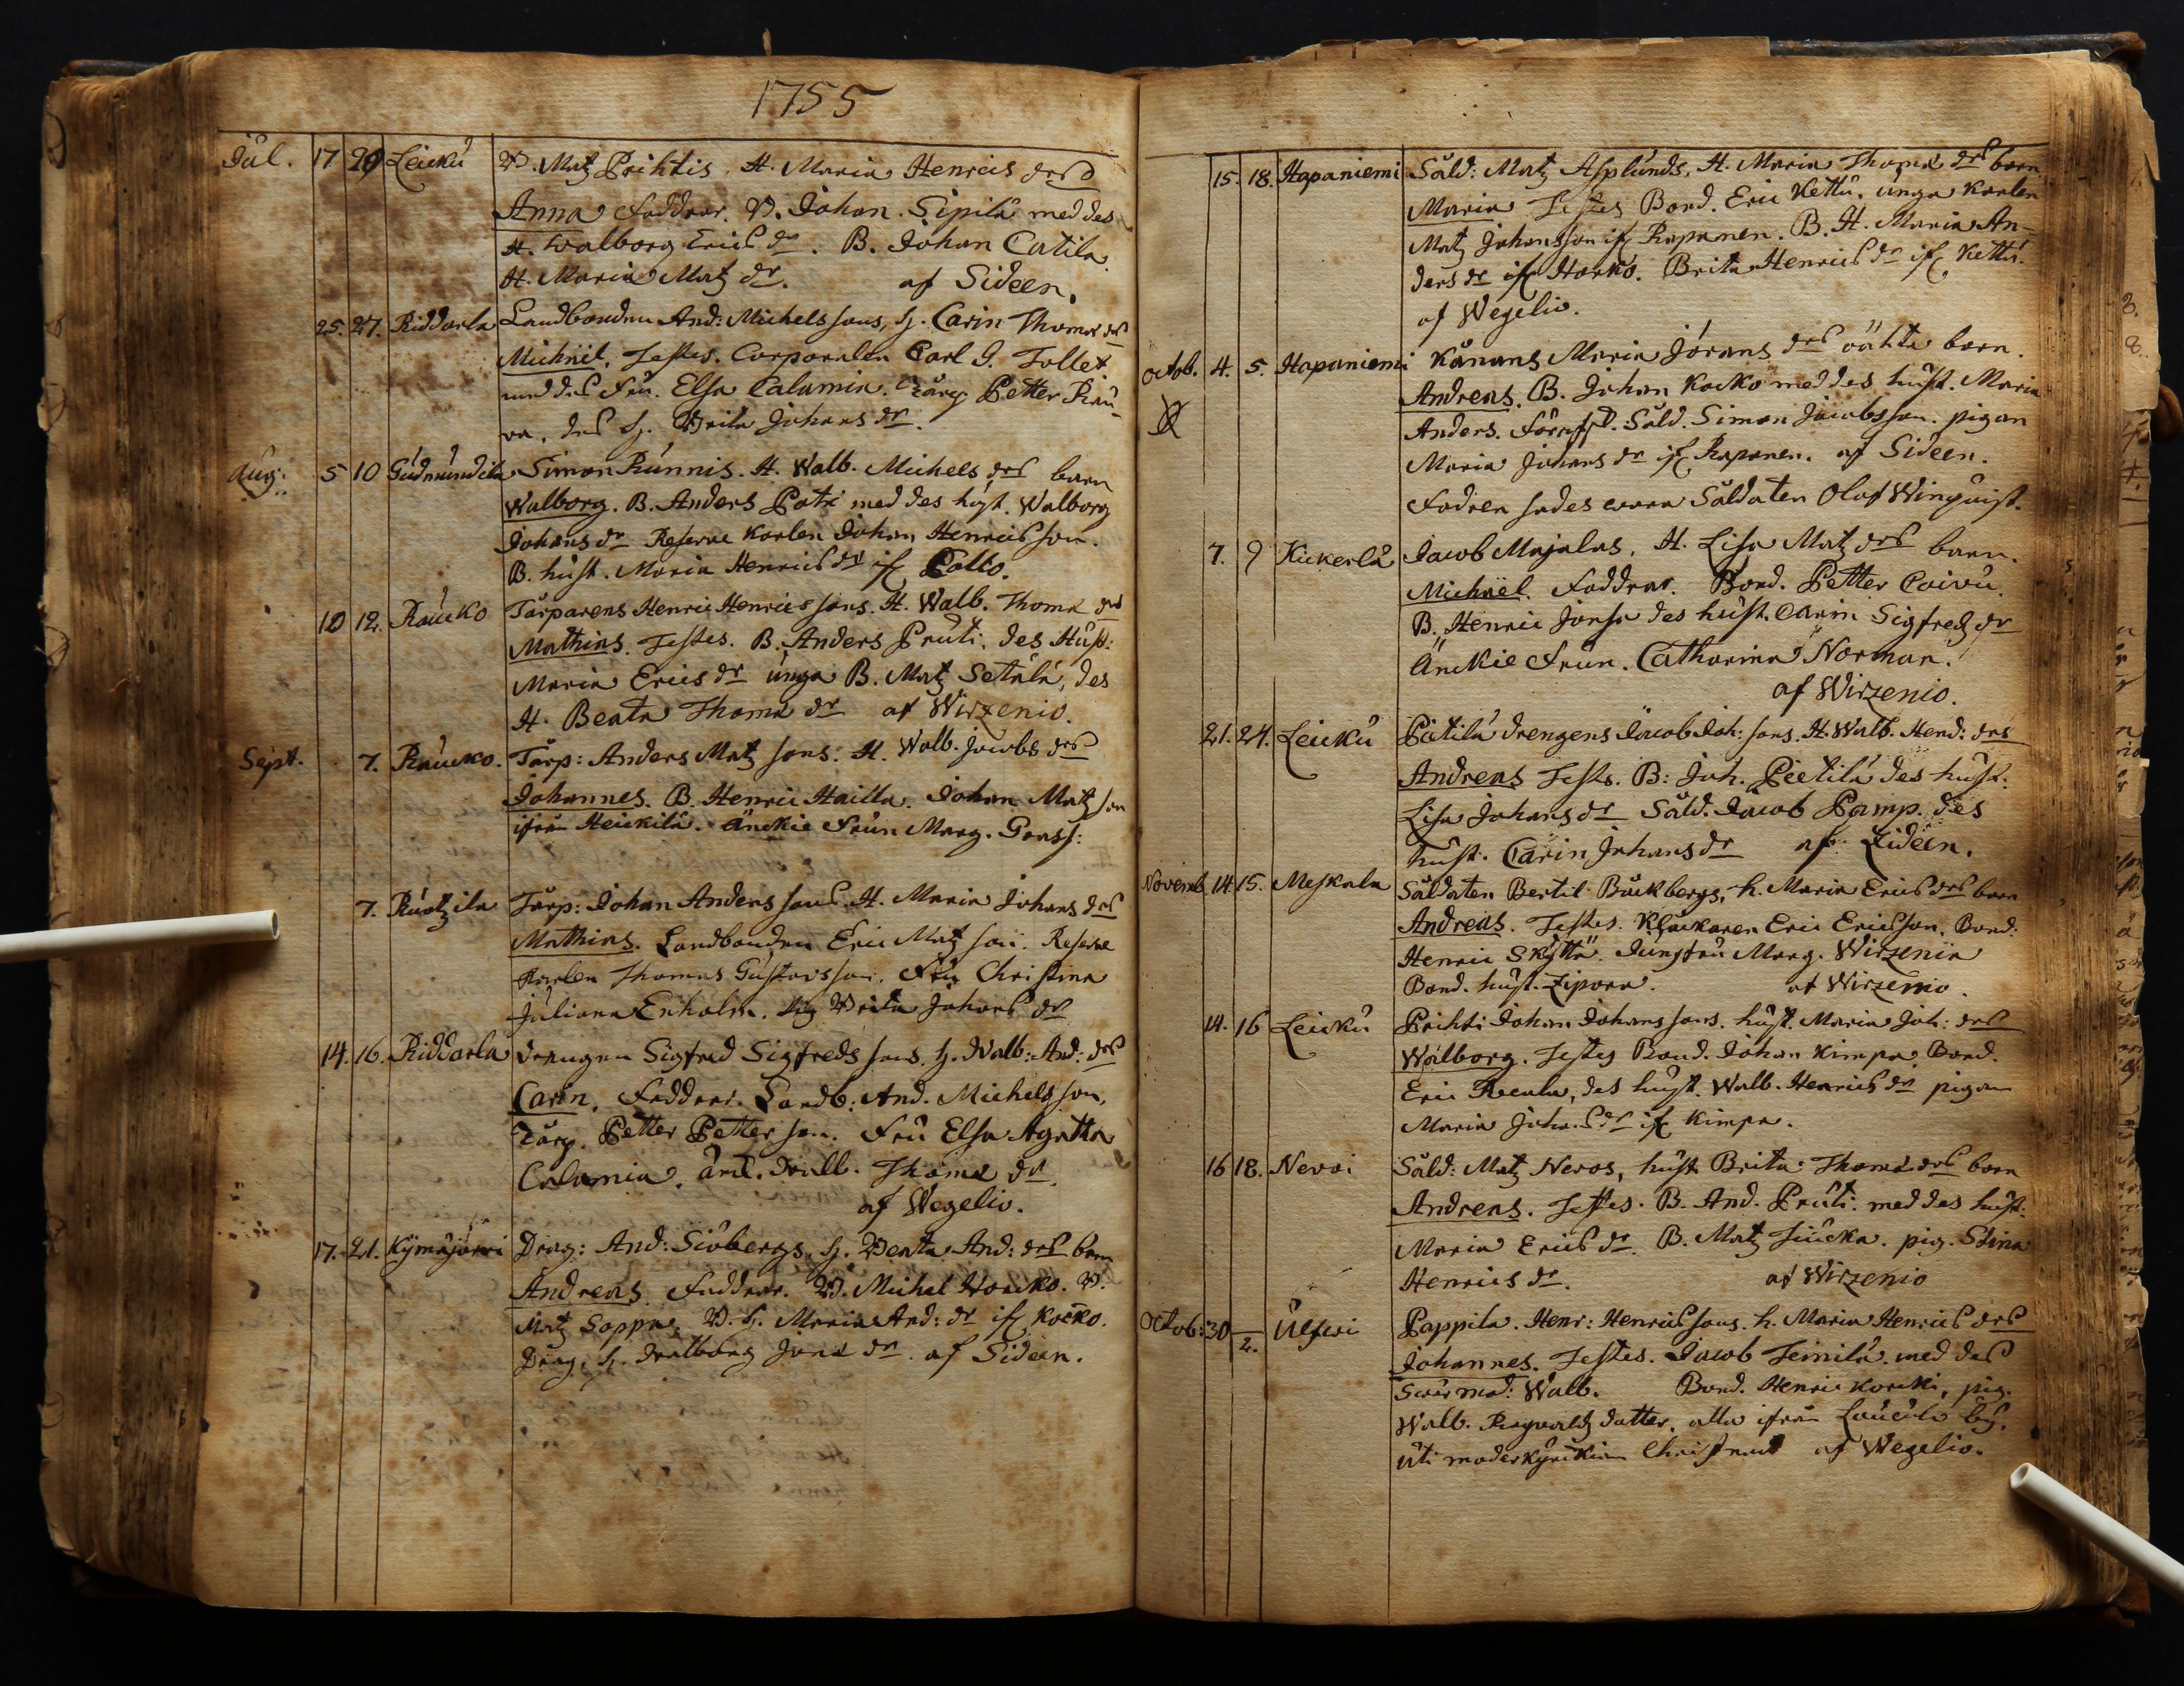 1755
Jul. 17 20 Leickù B. Matz Prihtis. H. Maria Henrics drs
Anna Faddrar. B. Johan. Sipilä med des
H. Walborg Erics dr. B. Johan Catila.
H. Maria Matz dr. af Sideen.
25. 27. Riddarla Landbonden And: Michelssons, h. Carin Thomæ drs
Michael. Testes. Corporalen Carl G. Tollet
med des Fru. Elsa Calamin. Torp Petter
des h. Brita Johans dr.
Aug: 5 10 Gudmundila Simon Runnis. H. Walb. Michels drs barn
Walborg. B. Anders Potri med des hust. Walborg
Johans dr Reserve Karlen Johan Henricsson.
B. hust. Maria Henrics dr if
10 12. Raucko Torparens Henric Henricssons. H. Walb. Thomæ drs
Mathias. Testes. B. Anders Pruti. des Hust:
Maria Erics dr unga B. Matz Setälä, des
H. Beata Thomæ dr af Wirzenio.
Sept. 7. Raucko. Torp: Anders Matzsons. H. Walb. Jacobs drs
Johannes. B. Henric Hailla. Johan Matzson
ifrån Heickilä. Änckie Frun Marg. Grass:
7. Ruotzila Torp: Johan Anderssons H. Maria Johans drs
Mathias. Landbonden Eric Matzson. Reserve
Karlen Thomas Gustavsson. Fru Christina
Juliana Enholm. Pig Brita Johans dr
14. 16. Riddarla drengen Sigfred Sigfredssons h. Walb: And: drs
Carin. Faddrar. Landb: And. Michelsson,
Torp. Petter Pettersson. Fru Elsa Agatha
Calamia. Walb. Thomæ dr.
af Wegelio.
17. 21. Kymäjärwi Drag: And: Siöbergs, h. Beata And: drs barn
Andreas. Faddrar. B. Michel Horcko. B.
Matz Soppa. B. h. Maria And: dr if Kocko.
Drag. h. Walborg dr. af Sideen.
15. 18. Hapaniemi Sold: Matz Asplunds, H. Maria Thomæ drs barn
Maria Testes Bond. Eric Kettu. unga Karlen
Matz Johansson if Rapanen. B. H. Maria An-
ders dr if Horko. Brita Henrics dr if Kettu.
af Wegelio.
Octob. 4. 5. Hapaniemi Konans Maria Jörans drs oächta barn.
Andreas. B. Johan Kocko med des hust. Maria
Anders. Sold. Simon Jacobsson. pigan
Maria Johans dr if Rapanen. af Sideen.
Fadren sades wara Soldaten Olof Winquist.
7. 9 Kickerlä Jacob Majalas, H. Lisa Matz drs barn.
Michael. Faddrar. Bond. Petter Coivu.
B. Henric Jonsa des hust. Carin Sigfredz dr
Änckie Frun. Catharina Norman.
af Wirzenio.
21. 24. Leickù Pietilä drengens Jacob Joh: sons. H. Walb. Hend: drs
Andreas Testes. B: Joh. Pietilä des hust:
Lisa Johans dr Sold. Jacob Pamp. des
hust. Carin Johans dr af Sideen.
Novemb. 14. 15. Meskala Soldaten Bertil Bäckbergs, h. Maria Erics drs barn
Andreas. Testes. Klockaren Eric Ericsson. Bond:
Henric Skyttä. Jungfru Marg. Wirzenia
Bond. hust. Zipora. af Wirzenio.
14. 16 Leickù Prihti Johan Johanssons. hust. Maria Joh: drs
Walborg. Testes Bond. Johan Kimpa. Bond.
Eric des hust. Walb. Henrics dr pigan
Maria Johans dr if Kimpa.
16 18. Nevoi Sold: Matz Nevos, hust Brita Thomæ drs barn
Andreas. Testes. B. And. Pruti. med des hust:
Maria Erics dr. B. Matz Siucka. pig. Stina
Henrics dr. af Wirzenio
Octob: 30 2. Ulfswi Pappila. Henr: Henricssons. h. Maria Henrics drs
Johannes. Testes. Jacob med des
Swärmod: Walb. Bond. Henric Korcki, pig.
Walb. Ragwaldz dotter. alla ifrån Laucula by.
uti moderkyrckian Christnat af Wegelio.